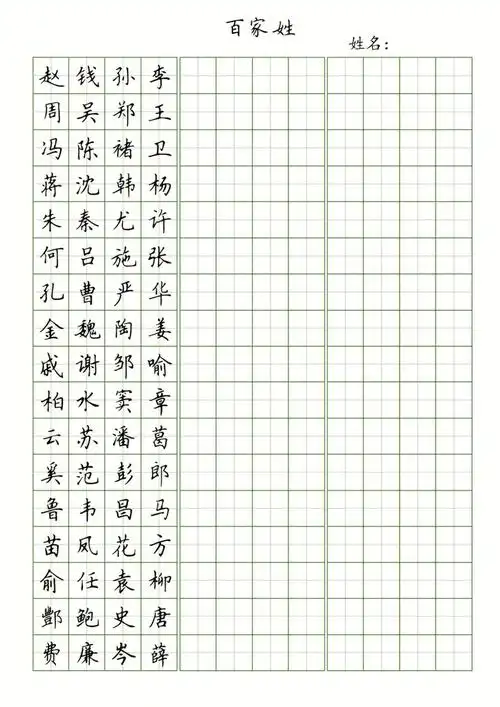 百家姓
姓名：
赵钱孙李
周吴郑王
冯陈褚卫
蒋沈韩杨
朱秦尤许
何吕施张
孔曹严华
金魏陶姜
戚谢邹喻
柏水窦章
云苏潘葛
奚范彭郎
鲁韦昌马
苗凤花方
俞任袁柳
酆鲍史唐
费廉岑薛